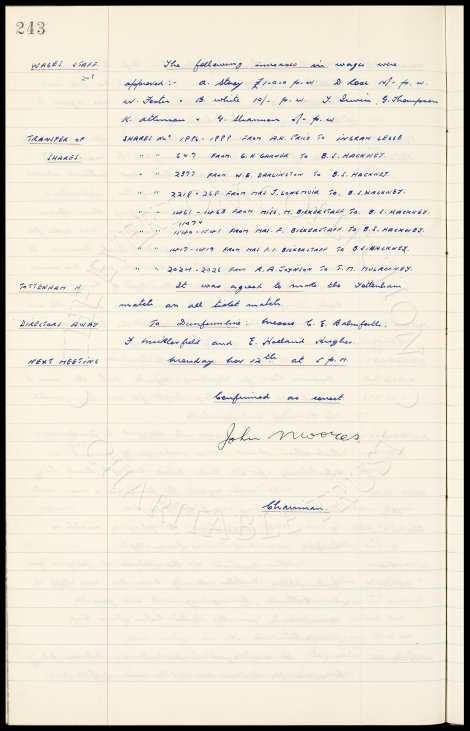 243
WAGES STAFF. The following increases in wages were
approved:- A. Storey £1-0-0 p.w. D Rose 10/- p.w.
W. Foster & B. White 10/- p.w. T. Irwin G. Thompson
K. Atkinson & G. Shannon 5/- p.w
TRANSFER OF SHARES Nos. 1996-1999 FROM A.K. PRICE TO INGRAM LEGGE
SHARES. " " 647 FROM G.H GARNER TO B.S. HACKNEY.
" " 2377 FROM W.E. DARLINGTON TO B.S. HACKNEY.
" " FROM MRS J. LONGMUIR TO B.S. HACKNEY.
" " 1461-1463 FROM MISS. M. BICKERSTAFF TO B.S. HACKNEY.
" " 1540-1541 FROM MRS F. BICKERSTAFF TO B.S. HACKNEY.
" " 1417-1419 FROM MRS F.I. BICKERSTAFF TO B.S. HACKNEY.
" " 2024-2026 FROM R.A. JOYNSON TO T.M. MULROONEY.
TOTTENHAM H. It was agreed to make the Tottenham
match an all ticket match.
DIRECTORS AWAY To Dunfermline: Messrs C. E. Balmforth.
F Micklesfield and E. Holland Hughes.
NEXT MEETING Monday Nov 12th at 5 p.m.
Confirmed as correct
John Moores.
Chairman.
CHARITABLE TRUST